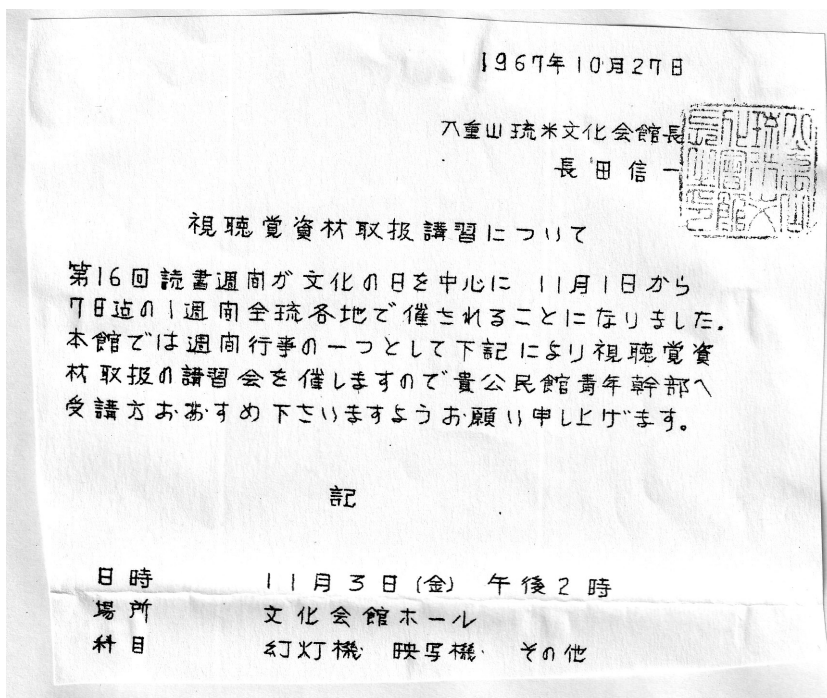 1967年10月27日
八重山琉米文化会館長
長田信一
視聴覚資材取扱講習について
第16回読書週間が文化の日を中心に 11月1日から
7日迠の1週間全琉各地で催されることになりました。
本館では週間行事の一つとして下記により視聴覚資
材取扱の講習会を催しますので貴公民館青年幹部へ
受講方おおすすめ下さいますようお願い申し上げます。
記
日時 11月3日(金) 午後2時
場所 文化会館ホール
科目 幻灯機 映写機 その他